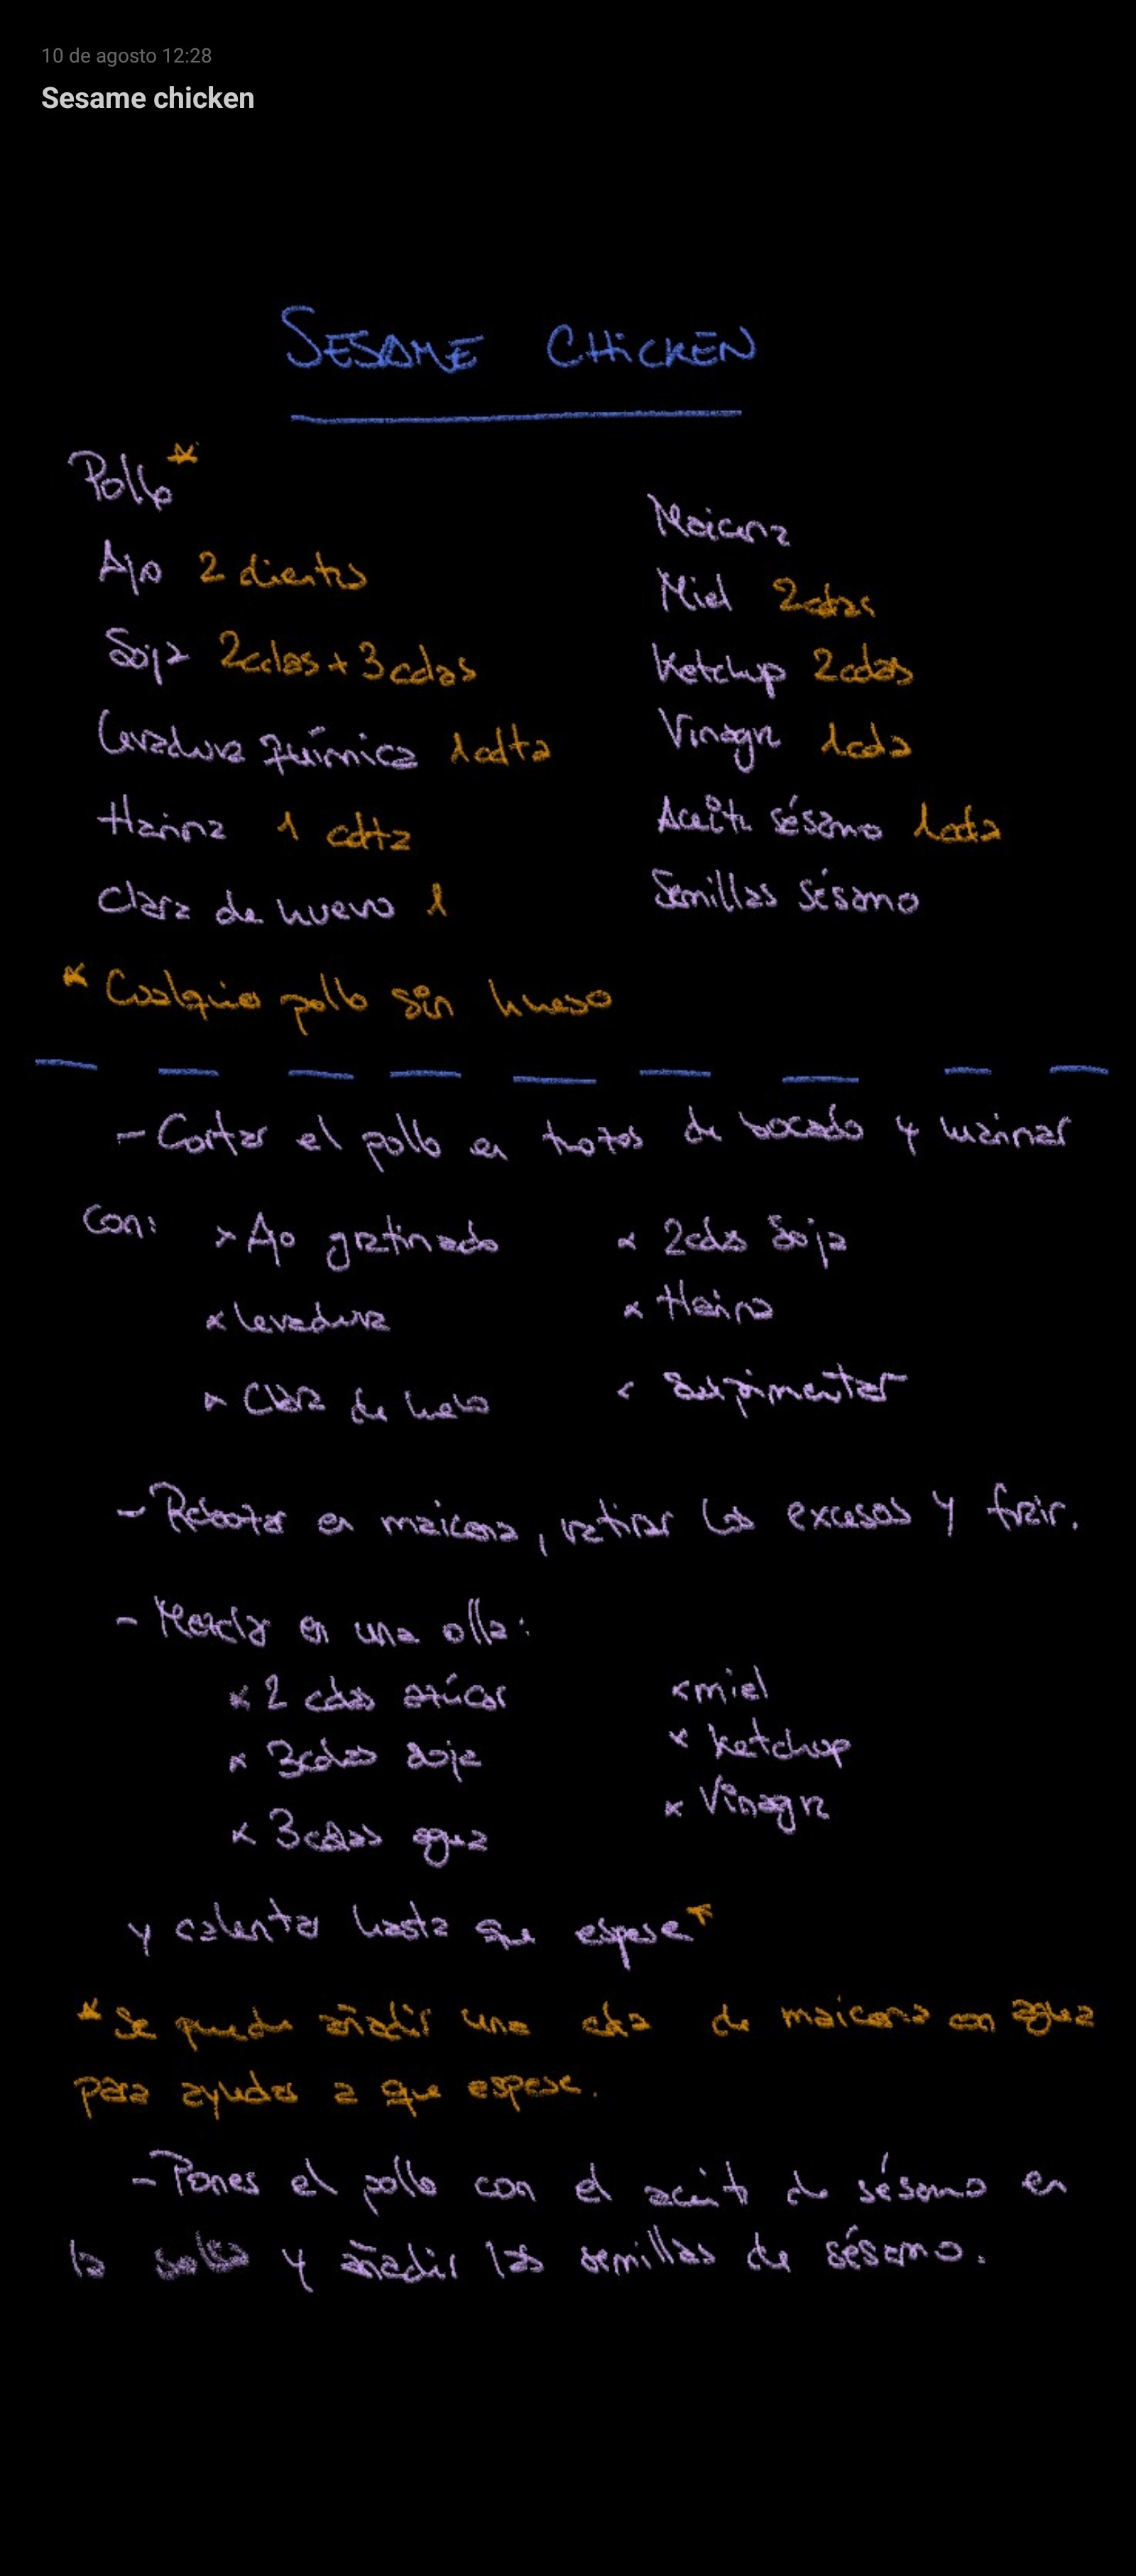 10 de agosto 12:28
Sesame chicken
SESAME CHICKEN
Pollo*
Ajo 2 dientes
Soja 2cdas + 3cdas
Levadura química 1cdta
Harina 1 cdta
Clara de huevo 1
Maicena
Miel 2cdas
Ketchup 2cdas
Vinagre 1cda
Aceite sésamo 1cda
Semillas sésamo
* Cualquier pollo sin hueso
- Cortar el pollo en trozos de bocado y marinar
Con:
x Ajo gratinado
x levadura
x Clara de huevo
x 2cdas Soja
x Harina
x Salpimentar
- Rebozar en maicena, retirar los excesos y freir.
- Mezclar en una olla:
x 2 cdas azúcar
x 3cdas soja
x 3cdas agua
x miel
x ketchup
x Vinagre
y calentar hasta que espese*
* Se puede añadir una cda de maicena en agua
para ayudar a que espese.
- Pones el pollo con el aceite de sésamo en
la salsa y añadir las semillas de sésamo.